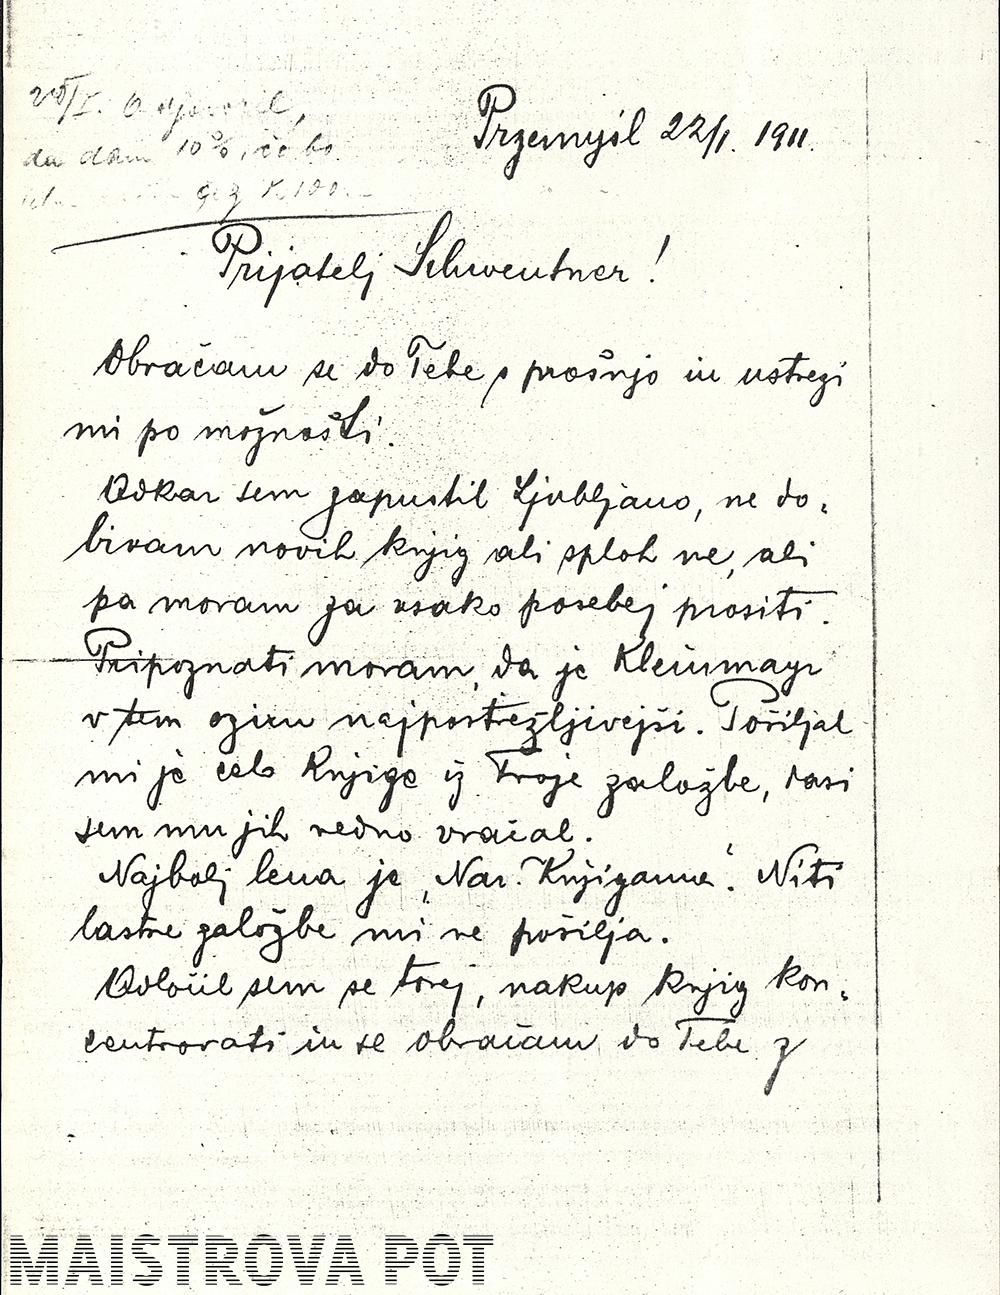 28/I. Odgovoril,
da dam 10%, če bo
čez K 100
Przemyśl 22/I. 1911.
Prijatelj Schwentner!
Obračam se do Tebe s prošnjo in ustrezi
mi po možnosti.
Odkar sem zapustil Ljubljano, ne do-
bivam novih knjig ali sploh ne, ali
pa moram za vsako posebej prositi.
Pripoznati moram, da je Kleinmayr
v tem oziru najpostrežljivejši. Pošiljal
mi je celo knjige iz Tvoje založbe, dasi
sem mu jih redno vračal.
Najbolj lena je „Nar. Knjigarna“. Niti
lastne založbe mi ne pošilja.
Odločil sem se torej, nakup knjig kon-
centrovati in se obračam do Tebe z
MAISTROVA POT